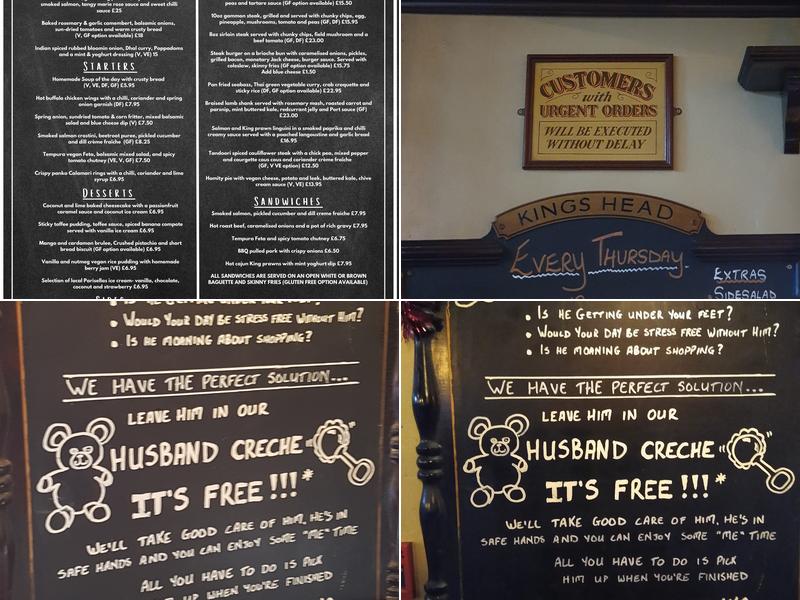 smoked salmon, tangy marie rose sauce and sweet chilli
sauce £25
Baked rosemary & garlic camembert, balsamic onions,
sun-dried tomatoes and warm crusty bread
(V, GF option available) £18
Indian spiced rubbed bloomin onion, Dhal curry, Poppadoms
and a mint & yoghurt dressing (V, VE) 15
STARTERS
Homemade Soup of the day with crusty bread
(V, VE, DF, GF) £5.95
Hot buffalo chicken wings with a chilli, coriander and spring
onion garnish (DF) £7.95
Spring onion, sundried tomato & corn fritter, mixed balsamic
salad and blue cheese dip (V) £7.50
Smoked salmon crostini, beetroot puree, pickled cucumber
and dill crème fraiche (GF) £8.25
Tempura vegan Feta, balsamic mixed salad, and spicy
tomato chutney (VE, V, GF) £7.50
Crispy panko Calamari rings with a chilli, coriander and lime
syrup £6.95
DESSERTS
Coconut and lime baked cheesecake with a passionfruit
caramel sauce and coconut ice cream £6.95
Sticky toffee pudding, toffee sauce, spiced banana compote
served with vanilla ice cream £6.95
Mango and cardamon brulee, Crushed pistachio and short
bread biscuit (GF option available) £6.95
Vanilla and nutmeg vegan rice pudding with homemade
berry jam (VE) £6.95
Selection of local Parisellas ice cream- vanilla, chocolate,
coconut and strawberry £6.95
peas and tartare sauce (GF option available) £15.50
10oz gammon steak, grilled and served with chunky chips, egg,
pineapple, mushrooms, tomato and peas (GF, DF) £15.95
8oz sirloin steak served with chunky chips, field mushroom and a
beef tomato (GF, DF) £23.00
Steak burger on a brioche bun with caramelised onions, pickles,
grilled bacon, monetary Jack cheese, burger sauce. Served with
coleslaw, skinny fries (GF option available) £15.75
Add blue cheese £1.50
Pan fried seabass, Thai green vegetable curry, crab croquette and
sticky rice (DF, GF option available) £22.95
Braised lamb shank served with rosemary mash, roasted carrot and
parsnip, mint buttered kale, redcurrent jelly and Port sauce (GF)
£23.00
Salmon and King prawn linguini in a smoked paprika and chilli
creamy sauce served with a poached langoustine and garlic bread
£16.95
Tandoori spiced cauliflower steak with a chick pea, mixed pepper
and courgette cous cous and coriander crème fraiche
(GF, V VE option) £12.50
Homity pie with vegan cheese, potato and leek, buttered kale, chive
cream sauce (V, VE) £13.95
SANDWICHES
Smoked salmon, pickled cucumber and dill creme fraiche £7.95
Hot roast beef, caramelised onions and a pot of rich gravy £7.95
Tempura Feta and spicy tomato chutney £6.75
BBQ pulled pork with crispy onions £6.50
Hot cajun King prawns with mint yoghurt dip £7.95
ALL SANDWICHES ARE SERVED ON AN OPEN WHITE OR BROWN
BAGUETTE AND SKINNY FRIES (GLUTEN FREE OPTION AVAILABLE)
CUSTOMERS
with
URGENT ORDERS
WILL BE EXECUTED
WITHOUT DELAY
KINGS HEAD
EVERY THURSDAY
EXTRAS
SIDESALAD
• IS HE GETTING UNDER YOUR FEET?
• WOULD YOUR DAY BE STRESS FREE WITHOUT HIM?
• IS HE MOANING ABOUT SHOPPING?
WE HAVE THE PERFECT SOLUTION...
LEAVE HIM IN OUR
HUSBAND CRECHE
IT'S FREE!!!*
WE'LL TAKE GOOD CARE OF HIM, HE'S IN
SAFE HANDS AND YOU CAN ENJOY SOME "ME" TIME
ALL YOU HAVE TO DO IS PICK
HIM UP WHEN YOU'RE FINISHED
• IS HE GETTING UNDER YOUR FEET?
• WOULD YOUR DAY BE STRESS FREE WITHOUT HIM?
• IS HE MOANING ABOUT SHOPPING?
WE HAVE THE PERFECT SOLUTION...
LEAVE HIM IN OUR
HUSBAND CRECHE
IT'S FREE!!!*
WE'LL TAKE GOOD CARE OF HIM, HE'S IN
SAFE HANDS AND YOU CAN ENJOY SOME "ME" TIME
ALL YOU HAVE TO DO IS PICK
HIM UP WHEN YOU'RE FINISHED